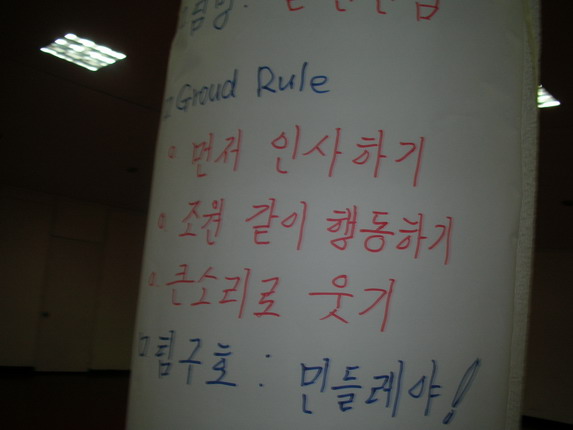 □ Groud Rule
o 먼저 인사하기
o 조원 같이 행동하기
o 큰소리로 웃기
□ 팀구호 : 민들레야!